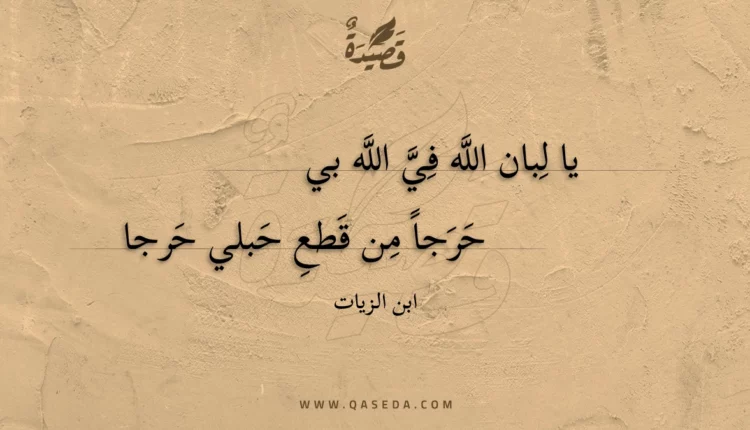 قَصِيدَةٌ
يا لِبان اللَّه فِيَّ اللَّه بي
حَرَجاً مِن قَطعِ حَبلي حَرجا
ابن الزيات
WWW.QASEDA.COM